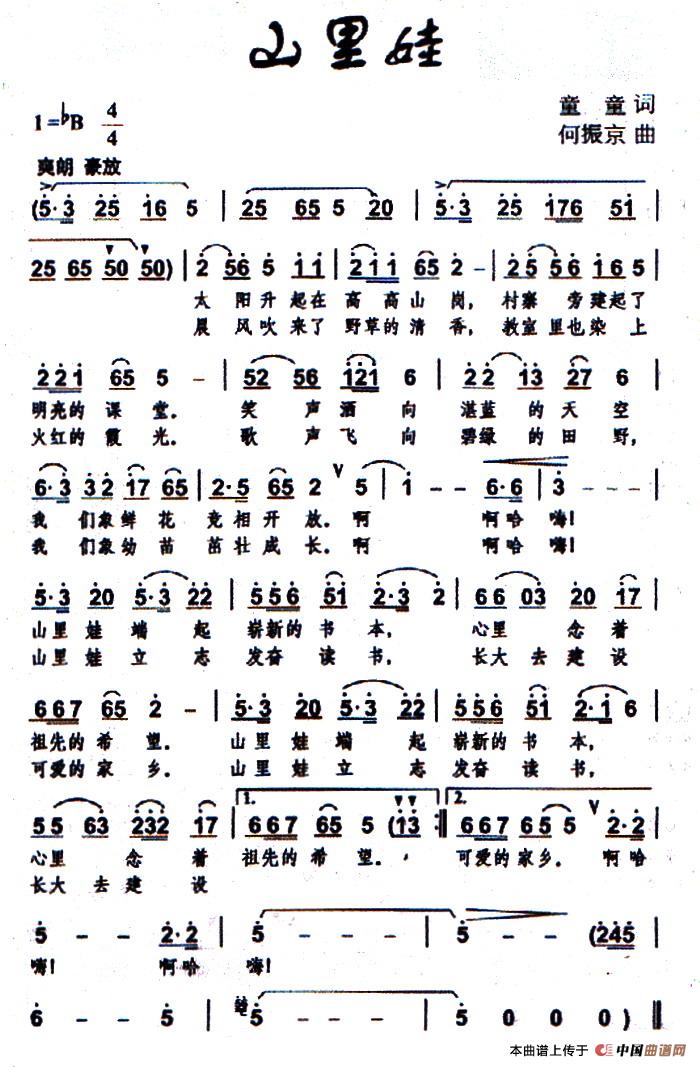 山里娃
童 童 词
1=♭B 4/4
何振京 曲
爽朗 豪放
(5·3 25 16 5 | 25 65 5 20 | 5·3 25 176 51 |
25 65 50 50) | 2 56 5 11 | 211 65 2 - | 25 56 1 65 |
太 阳升 起在 高 高山 岗, 村寨 旁建起了
晨 风吹 来了 野草的 清 香, 教室 里也染 上
221 65 5 - | 52 56 121 6 | 22 13 27 6 |
明亮的 课 堂。 笑 声 洒 向 湛蓝 的 天 空
火红的 霞 光。 歌 声 飞 向 碧绿 的 田 野,
6·3 32 17 65 | 2·5 65 2 5 | 1 - - 6·6 | 3 - - - |
我 们象 鲜 花 竞 相 开 放。 啊 啊哈 嗨!
我 们象 幼 苗 茁 壮 成 长。 啊 啊哈 嗨!
5·3 20 5·3 22 | 556 51 2·3 2 | 66 03 20 17 |
山里 娃 端 起 崭新的 书 本, 心里 念 着
山里 娃 立 志 发奋 读 书, 长大 去 建 设
667 65 2 - | 5·3 20 5·3 22 | 556 51 2·1 6 |
祖先的 希 望。 山里 娃 端 起 崭新的 书 本,
可爱的 家 乡。 山里 娃 立 志 发奋 读 书,
55 63 232 17 | 1. 667 65 5 (13 :‖ 2. 667 65 5 2·2 |
心里 念 着 祖先的 希 望。 可爱的 家乡。 啊哈
长大 去 建 设
5 - - 2·2 | 5 - - - | 5 - - (245 |
嗨! 啊哈 嗨!
6 - - 5 | 5 - - - | 5 0 0 0 ) ‖
本曲谱上传于 中国曲谱网